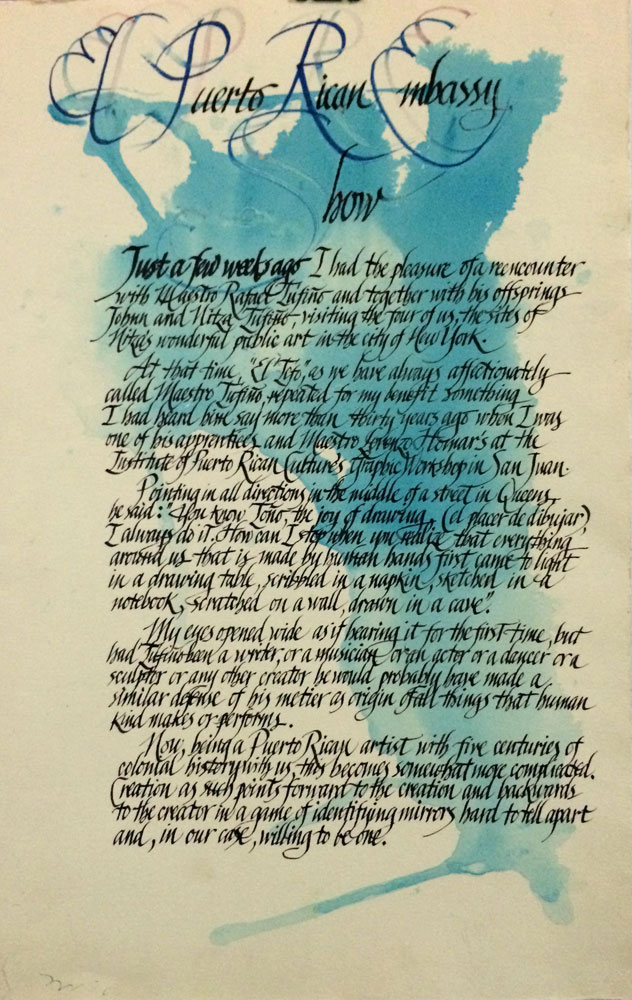 El Puerto Rican Embassy
how
Just a few weeks ago I had the pleasure of a reencounter
with Maestro Rafael Tufiño and together with his offsprings
Johnn and Nitza Tufiño, visiting the four of us, the sites of
Nitza's wonderful public art in the city of New York.
At that time, "El Tefo", as we have always affectionately
called Maestro Tufiño, repeated for my benefit something
I had heard him say more than thirty years ago when I was
one of his apprentices and Maestro Lorenzo Homar's at the
Institute of Puerto Rican Culture's Graphic Workshop in San Juan.
Pointing in all directions in the middle of a street in Queens,
he said: "You know Toño, the joy of drawing, (el placer de dibujar)
I always do it. How can I stop when you realize that everything
around us that is made by human hands first came to light
in a drawing table, scribbled in a napkin, sketched in a
notebook, scratched on a wall, drawn in a cave".
My eyes opened wide as if hearing it for the first time, but
had Tufiño been a writer, or a musician or an actor or a dancer or a
sculptor or any other creator he would probably have made a
similar defense of his metier as origin of all things that human
kind makes or performs.
Now, being a Puerto Rican artist with five centuries of
colonial history with us, this becomes somewhat more complicated.
Creation as such points forward to the creation and backwards
to the creator in a game of identifying mirrors hard to tell apart
and, in our case, willing to be one.